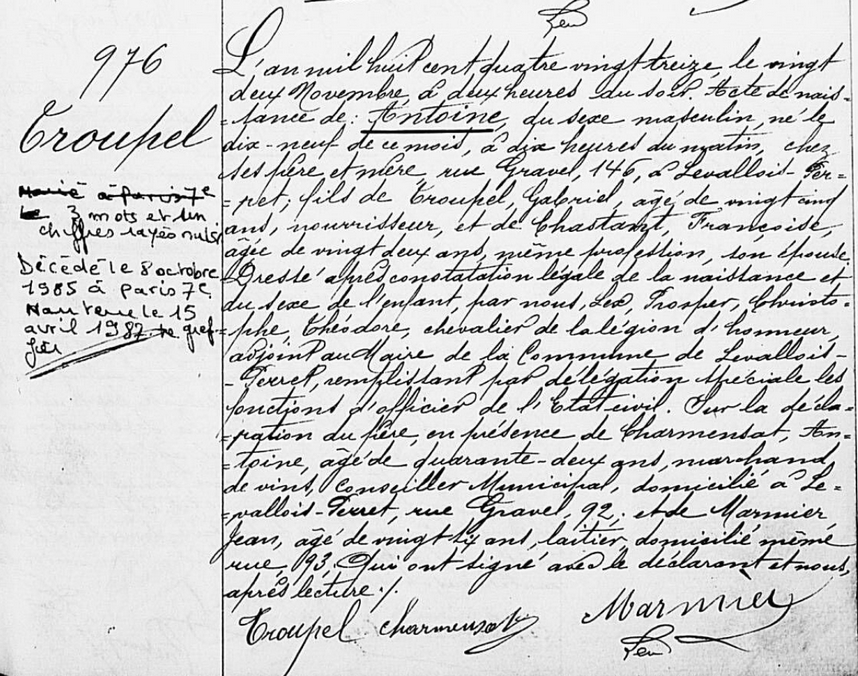 976
Troupel
Marié à Paris 7e
le 3 mots et un
chiffres rayés nuls
Décédé le 8 octobre
1985 à Paris 7e
Nanterre le 15
avril 1987 Le gref-
fier
L'an mil huit cent quatre vingt treize le vingt
deux Novembre à deux heures du soir. Acte de nais-
-sance de : Antoine, du sexe masculin, né le
dix-neuf de ce mois, à dix heures du matin, chez
ses père et mère, rue Gravel, 146, à Levallois-Per-
-ret; fils de Troupel, Gabriel, âgé de vingt cinq
ans, nourrisseur, et de Chastant, Françoise,
âgée de vingt deux ans, même profession, son épouse.
Dressé après constatation légale de la naissance et
du sexe de l'enfant, par nous, Lex, Prosper, Christo-
-phe, Théodore, chevalier de la légion d'honneur,
adjoint au Maire de la Commune de Levallois-
-Perret, remplissant par délégation spéciale les
fonctions d'officier de l'Etat civil. Sur la décla-
-ration du père, en présence de Charmensat, An-
-toine, âgé de quarante-deux ans, marchand
de vins, Conseiller Municipal, domicilié à Le-
-vallois-Perret, rue Gravel, 92; et de Marmier
Jean, âgé de vingt six ans, laitier, domicilié même
rue, 93, Qui ont signé avec le déclarant et nous,
après lecture ./.
Troupel Charmensat Marmier
Lex